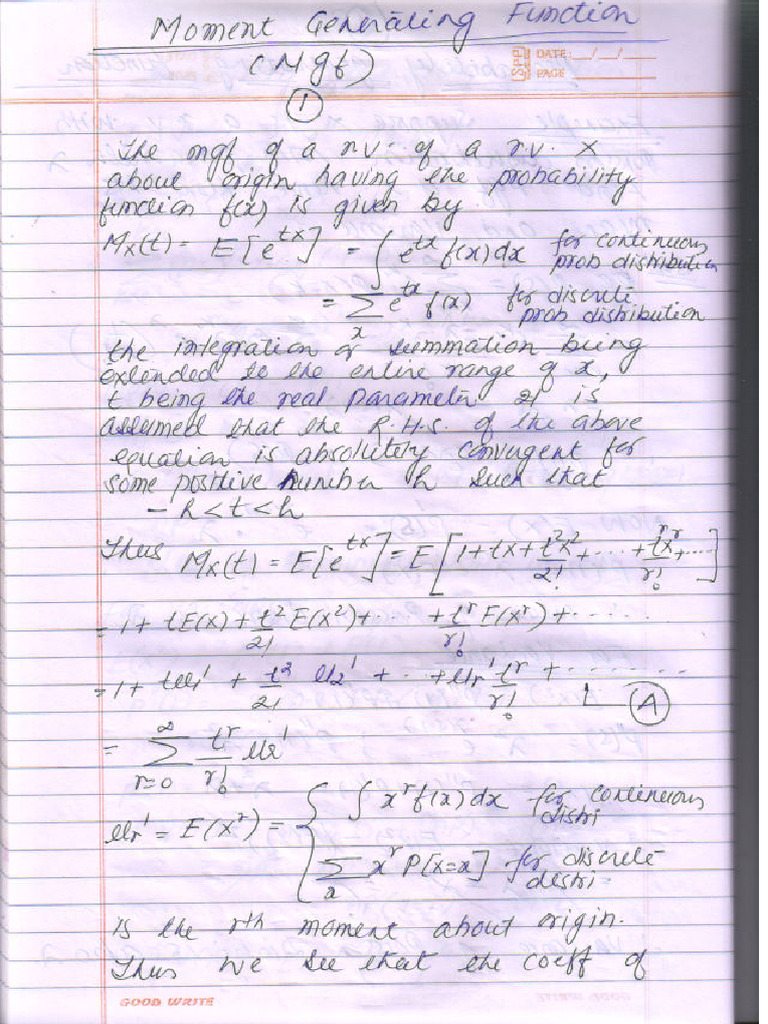 Moment Generating Function
(Mgf)
SPP DATE: __/__/__
PAGE
1
The mgf of a r.v. of a r.v. X
about origin having the probability
function f(x) is given by
Mx(t) = E[e^{tX}] = ∫ e^{tx} f(x) dx for continuous prob distribution
= Σ_x e^{tx} f(x) for discrete prob distribution
the integration or summation being
extended to the entire range of x,
t being the real parameter it is
assumed that the R.H.S. of the above
equation is absolutely convergent for
some positive number h such that
-h < t < h
Thus Mx(t) = E[e^{tx}] = E[1 + tx + t²x²/2! + ... + t^r x^r/r! + ....]
= 1 + tE(x) + t²/2! E(x²) + ... + t^r/r! E(x^r) + .......
= 1 + tμ₁' + t²/2! μ₂' + ... + μr' t^r/r! + ........ (A)
= Σ_{r=0}^{∞} t^r/r! μr'
μr' = E(X^r) = { ∫ x^r f(x) dx for continuous distri
Σ_x x^r P[X=x] for discrete distri
is the rth moment about origin.
Thus we see that the coeff of
GOOD WRITE